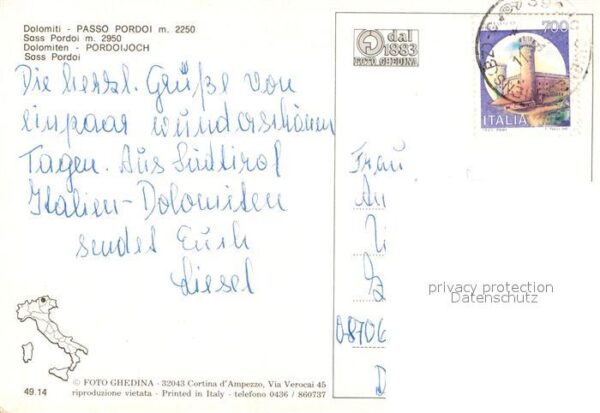 Dolomiti - PASSO PORDOI m. 2250
Sass Pordoi m. 2950
Dolomiten - PORDOIJOCH
Sass Pordoi
dal
1883
FOTO GHEDINA
700
ITALIA
Die herzl. Grüße von
einpaar wunderschönen
Tagen. Aus Südtirol
Italien-Dolomiten
sendet Euch
Liesel
Frau
08706
privacy protection
Datenschutz
49.14
© FOTO GHEDINA - 32043 Cortina d'Ampezzo, Via Verocai 45
riproduzione vietata - Printed in Italy - telefono 0436 / 860737